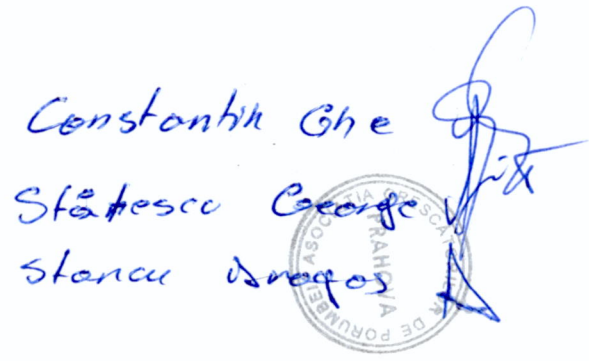 Constantin Ghe
Stătescu George
Stancu Dragoș
ASOCIAȚIA CRESCĂTORILOR DE PORUMBEI
PRAHOVA